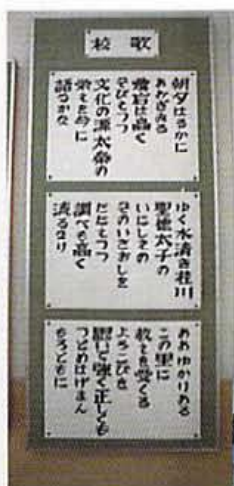 校歌
朝夕はるかに
あおぎみる
愛宕は高く
そびえつつ
文化の源太秦の
栄えを今に
語るかな
ゆく水清き桂川
聖徳太子の
いにしえの
そのいさおしを
たたえつつ
調べも高く
流るなり
ああゆかりある
この里に
教えを受くる
よろこびを
胆じて強く正しくも
つとめはげまん
もろともに